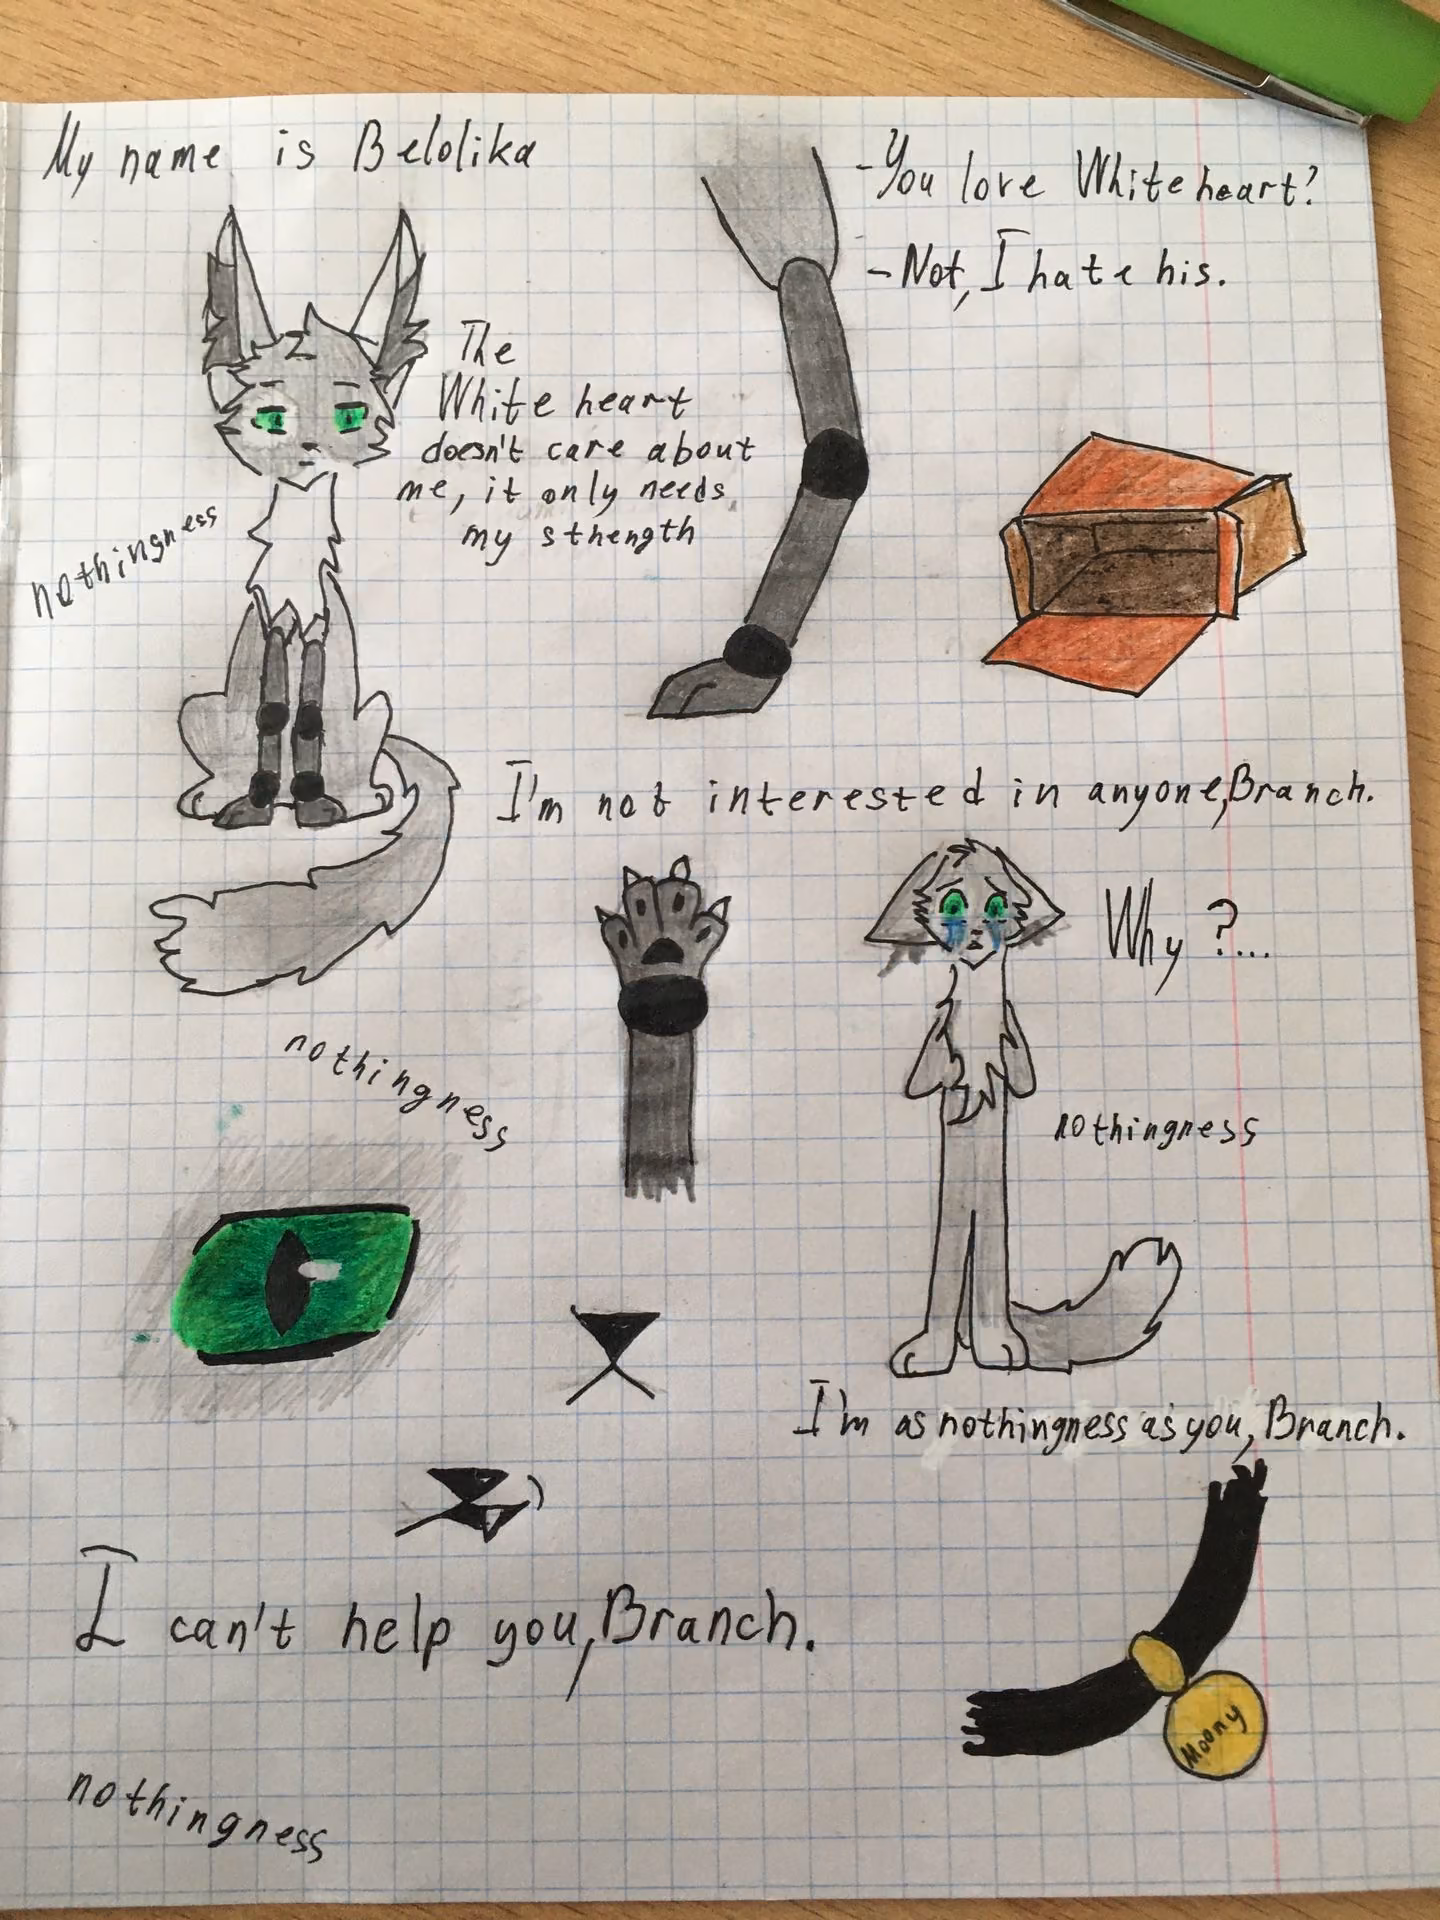 My name is Belolika
-You love Whiteheart?
-Not, I hate his.
The
White heart
doesn't care about
me, it only needs
my sthength
nothingness
I'm not interested in anyone, Branch.
Why ?...
nothingness
nothingness
I'm as nothingness as you, Branch.
I can't help you, Branch.
Moony
nothingness